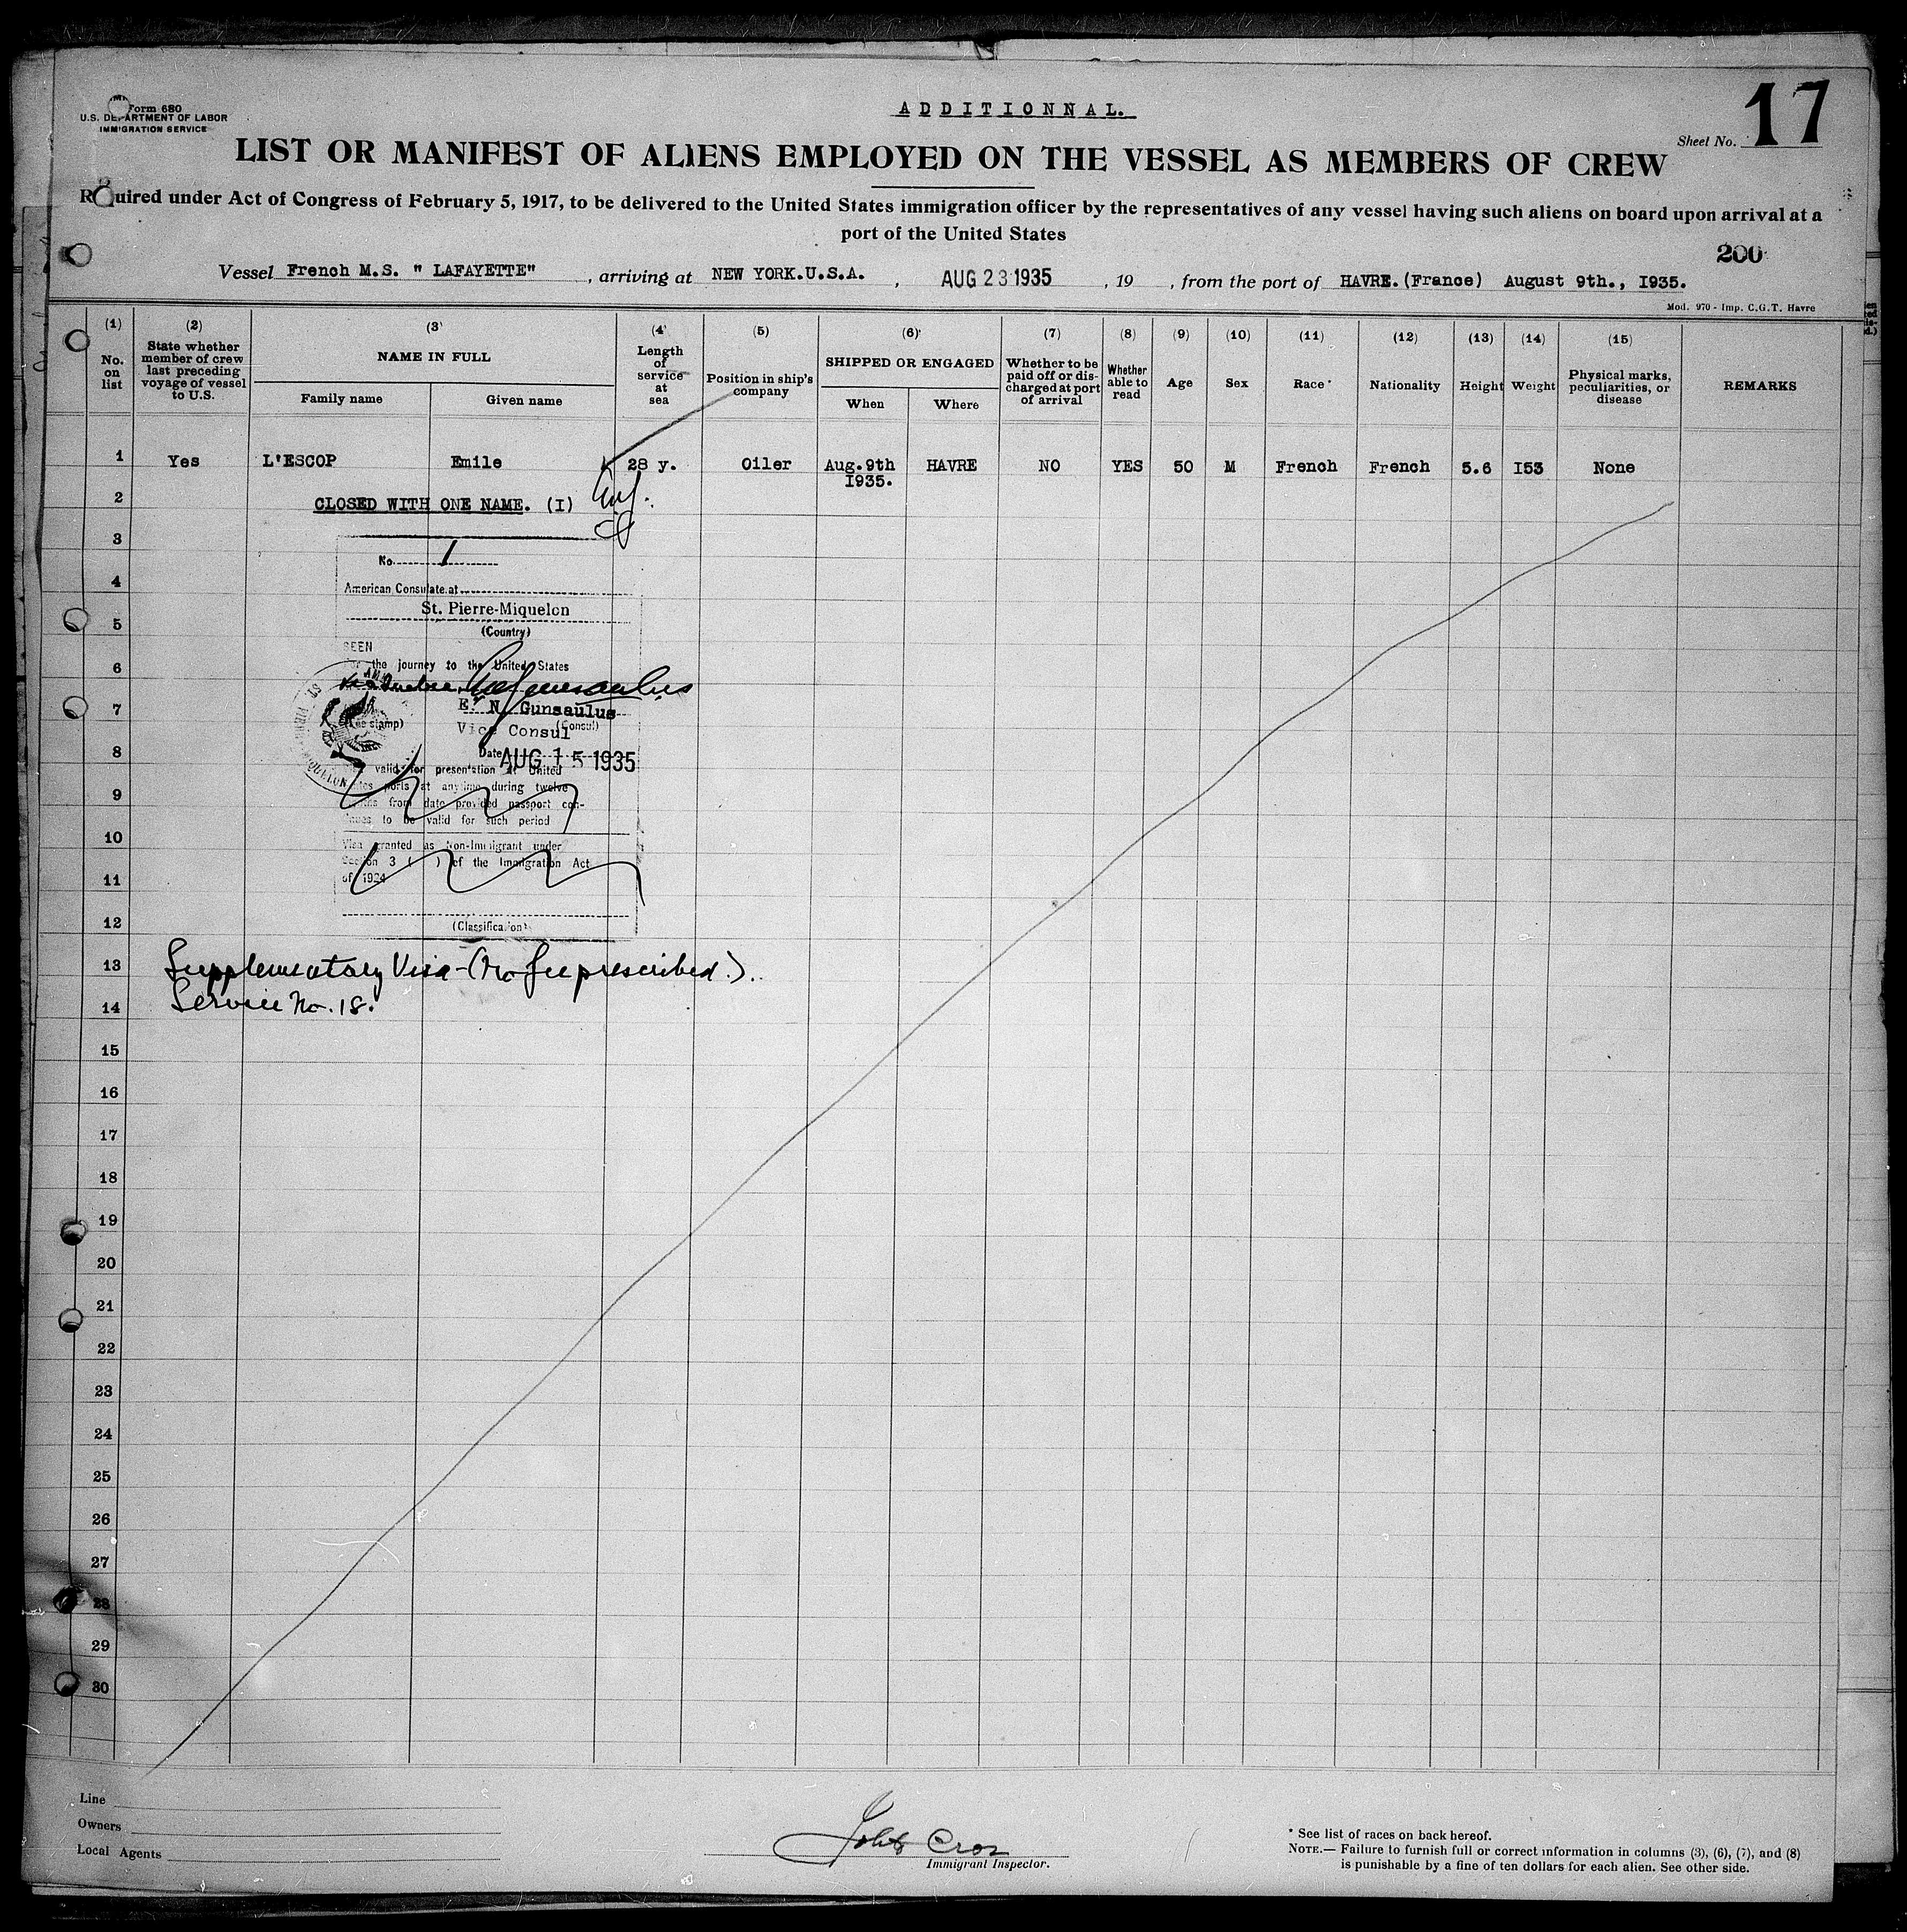 Form 680
U.S. DEPARTMENT OF LABOR
IMMIGRATION SERVICE
ADDITIONNAL.
Sheet No. 17
LIST OR MANIFEST OF ALIENS EMPLOYED ON THE VESSEL AS MEMBERS OF CREW
Required under Act of Congress of February 5, 1917, to be delivered to the United States immigration officer by the representatives of any vessel having such aliens on board upon arrival at a
port of the United States
200
Vessel French M.S. " LAFAYETTE" , arriving at NEW YORK.U.S.A. , AUG 23 1935 , 19 , from the port of HAVRE.(France) August 9th., I935.
Mod. 970 - Imp. C.G.T. Havre
(1) No. on list
(2) State whether member of crew last preceding voyage of vessel to U.S.
(3) NAME IN FULL
Family name Given name
(4) Length of service at sea
(5) Position in ship's company
(6) SHIPPED OR ENGAGED
When Where
(7) Whether to be paid off or discharged at port of arrival
(8) Whether able to read
(9) Age
(10) Sex
(11) Race *
(12) Nationality
(13) Height
(14) Weight
(15) Physical marks, peculiarities, or disease
REMARKS
1 Yes L'ESCOP Emile 28 y. Oiler Aug.9th I935. HAVRE NO YES 50 M French French 5.6 I53 None
2 CLOSED WITH ONE NAME. (I)
3
No. 1
4
American Consulate at
St. Pierre-Miquelon
5
(Country)
SEEN
6
For the journey to the United States
7
E. N. Gunsaulus
(Consul)
Vice Consul
(The stamp)
8
Date AUG 15 1935
valid for presentation at United
States ports at anytime during twelve
9
months from date provided passport con-
tinues to be valid for such period
10
Visa granted as Non-Immigrant under
Section 3 ( ) of the Immigration Act
11
of 1924
12
(Classification)
13 Supplementary Visa - (No fee prescribed.).
14 Service No. 18.
15
16
17
18
19
20
21
22
23
24
25
26
27
28
29
30
Line
Owners
Local Agents
John Cros
Immigrant Inspector.
* See list of races on back hereof.
NOTE.— Failure to furnish full or correct information in columns (3), (6), (7), and (8)
is punishable by a fine of ten dollars for each alien. See other side.